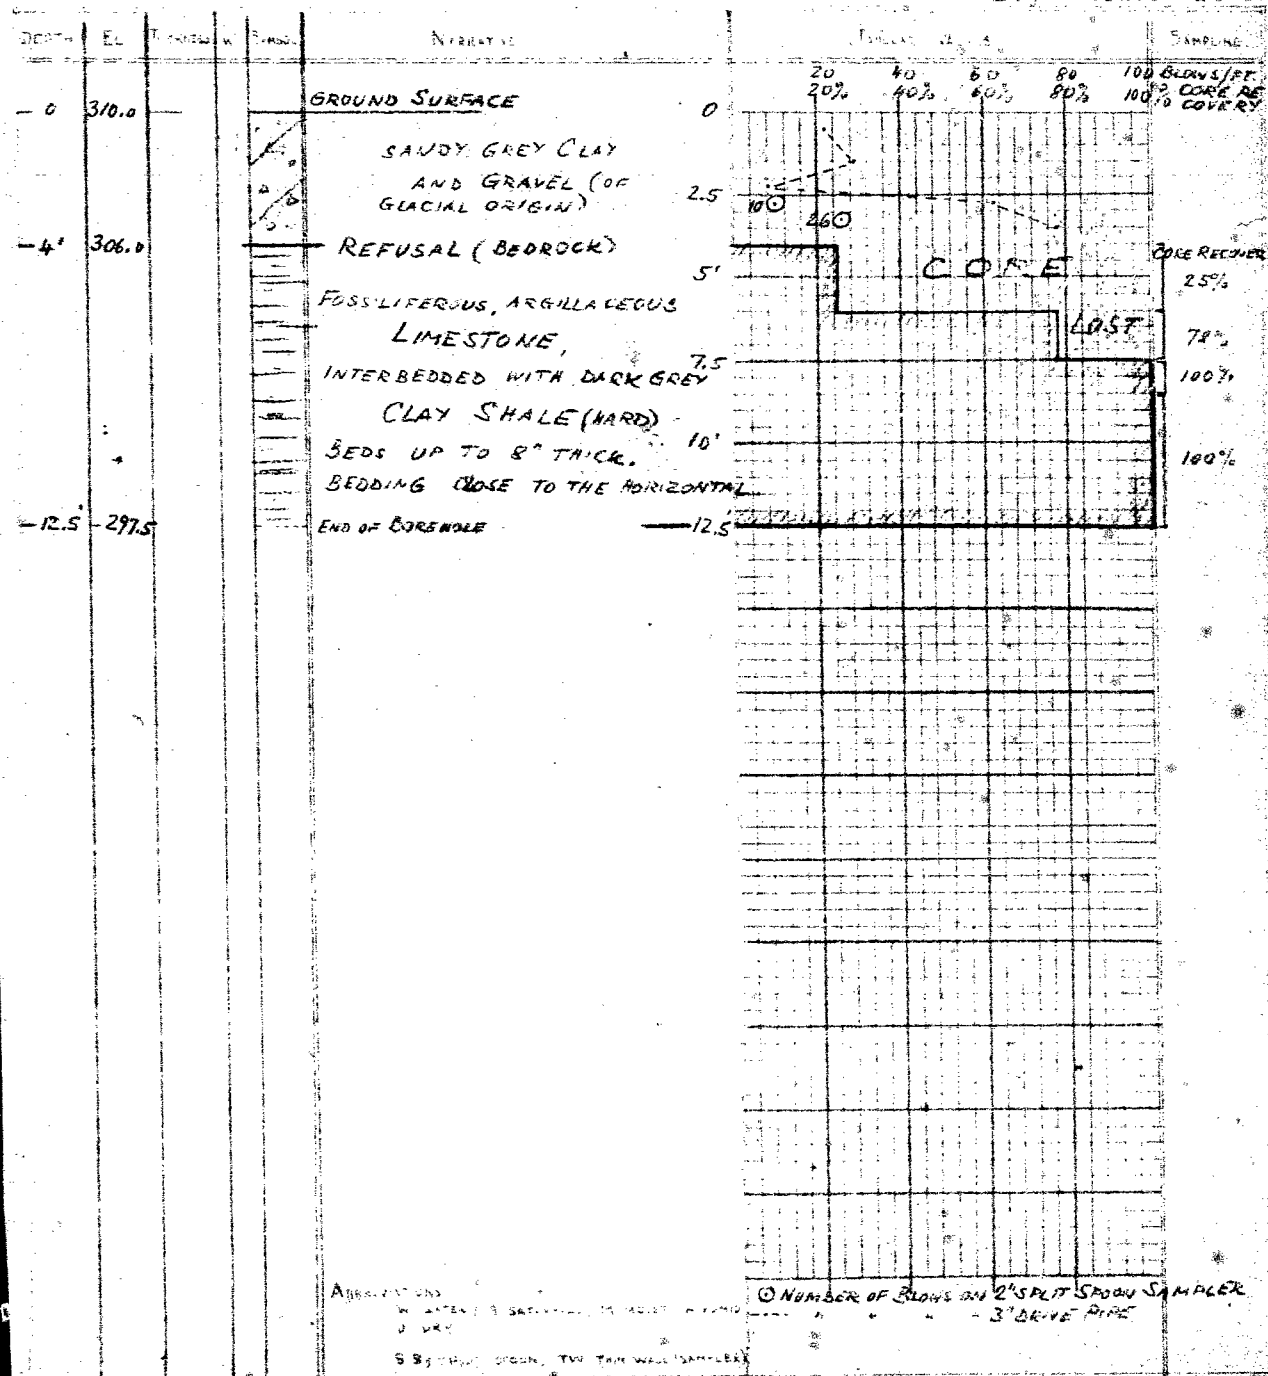 DEPTH EL. SYMBOL NARRATIVE SAMPLING
20 40 60 80 100 BLOWS/FT.
20% 40% 60% 80% 100% CORE RE
COVERY
0 310.0 GROUND SURFACE 0
SANDY GREY CLAY
AND GRAVEL (OF
GLACIAL ORIGIN)
2.5
10
26
4' 306.0 REFUSAL (BEDROCK)
CORE LOST
CORE RECOVER
25%
5'
FOSSILIFEROUS, ARGILLACEOUS
LIMESTONE,
78%
7.5
INTERBEDDED WITH DARK GREY
100%
CLAY SHALE (HARD)
10'
BEDS UP TO 8" THICK.
100%
BEDDING CLOSE TO THE HORIZONTAL
12.5' 297.5 END OF BOREHOLE 12.5'
ABBREVIATIONS
⊙ NUMBER OF BLOWS ON 2" SPLIT SPOON SAMPLER
---- " " " - 3" DRIVE PIPE